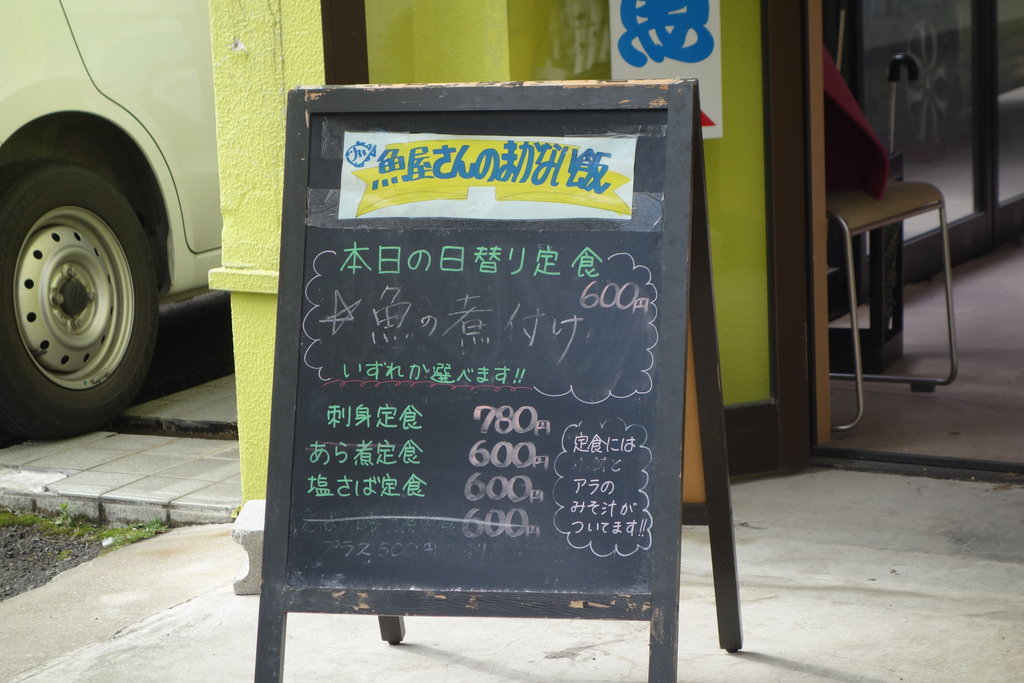 魚
魚屋さんのまかない飯
本日の日替り定食
600円
☆魚の煮付け
いずれか選べます!!
刺身定食 780円
あら煮定食 600円
塩さば定食 600円
600円
プラス500円
定食には
小鉢と
アラの
みそ汁が
ついてます!!